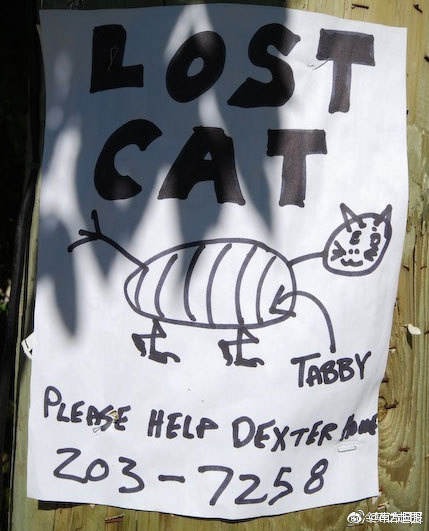 LOST
CAT
TABBY
PLEASE HELP DEXTER HOME
203-7258